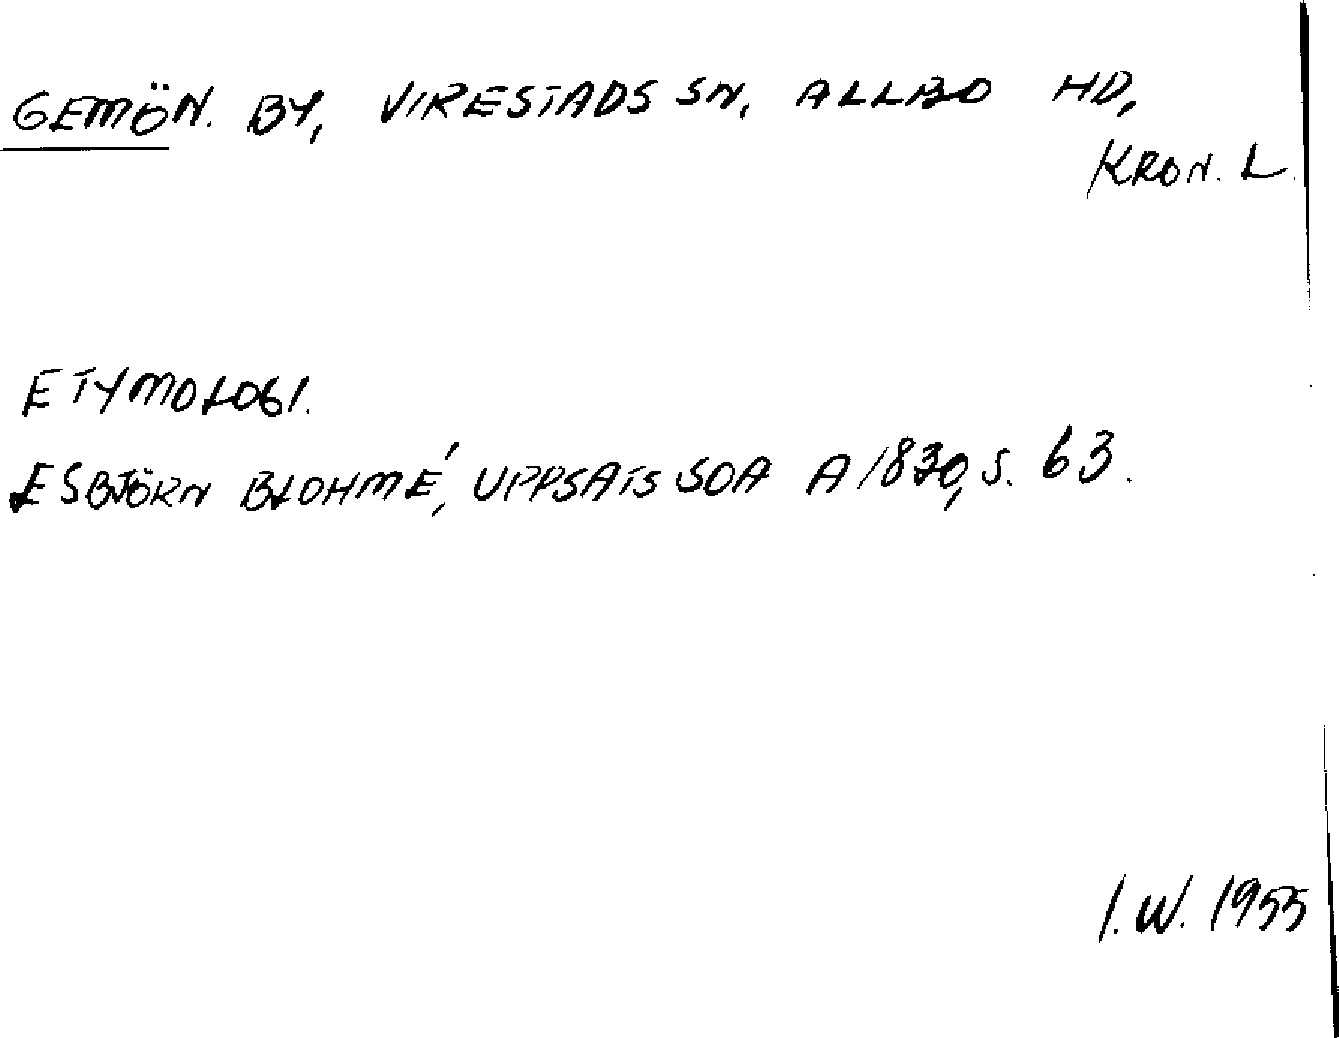 GEMÖN. BY, VIRESTADS SN, ALLBO HD,
KRON. L.
ETYMOLOGI.
ESBJÖRN BLOHMÉ, UPPSATS SOA A 1830, S. 63.
I.W. 1955